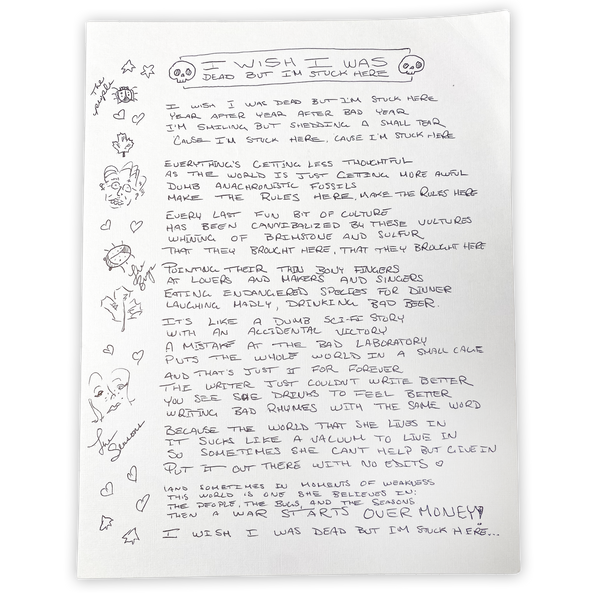 I WISH I WAS
DEAD BUT I'M STUCK HERE
The people
I WISH I WAS DEAD BUT I'M STUCK HERE
YEAR AFTER YEAR AFTER BAD YEAR
I'M SMILING BUT SHEDDING A SMALL TEAR
'CAUSE I'M STUCK HERE, CAUSE I'M STUCK HERE
EVERYTHING'S GETTING LESS THOUGHTFUL
AS THE WORLD IS JUST GETTING MORE AWFUL
DUMB ANACHRONISTIC FOSSILS
MAKE THE RULES HERE, MAKE THE RULES HERE
EVERY LAST FUN BIT OF CULTURE
HAS BEEN CANNIBALIZED BY THESE VULTURES
WHINING OF BRIMSTONE AND SULFUR
THAT THEY BROUGHT HERE, THAT THEY BROUGHT HERE
The Bugs
POINTING THEIR THIN BONY FINGERS
AT LOVERS AND MAKERS AND SINGERS
EATING ENDANGERED SPECIES FOR DINNER
LAUGHING MADLY, DRINKING BAD BEER.
ITS LIKE A DUMB SCI-FI STORY
WITH AN ACCIDENTAL VICTORY
A MISTAKE AT THE BAD LABORATORY
PUTS THE WHOLE WORLD IN A SMALL CAGE
AND THAT'S JUST IT FOR FOREVER
THE WRITER JUST COULDN'T WRITE BETTER
YOU SEE SHE DRINKS TO FEEL BETTER
WRITING BAD RHYMES WITH THE SAME WORD
The Seasons
BECAUSE THE WORLD THAT SHE LIVES IN
IT SUCKS LIKE A VACUUM TO LIVE IN
SO SOMETIMES SHE CAN'T HELP BUT GIVE IN
PUT IT OUT THERE WITH NO EDITS ♡
(AND SOMETIMES IN MOMENTS OF WEAKNESS
THIS WORLD IS ONE SHE BELIEVES IN:
THE PEOPLE, THE BUGS, AND THE SEASONS
THEN A WAR STARTS OVER MONEY)!
I WISH I WAS DEAD BUT I'M STUCK HERE...